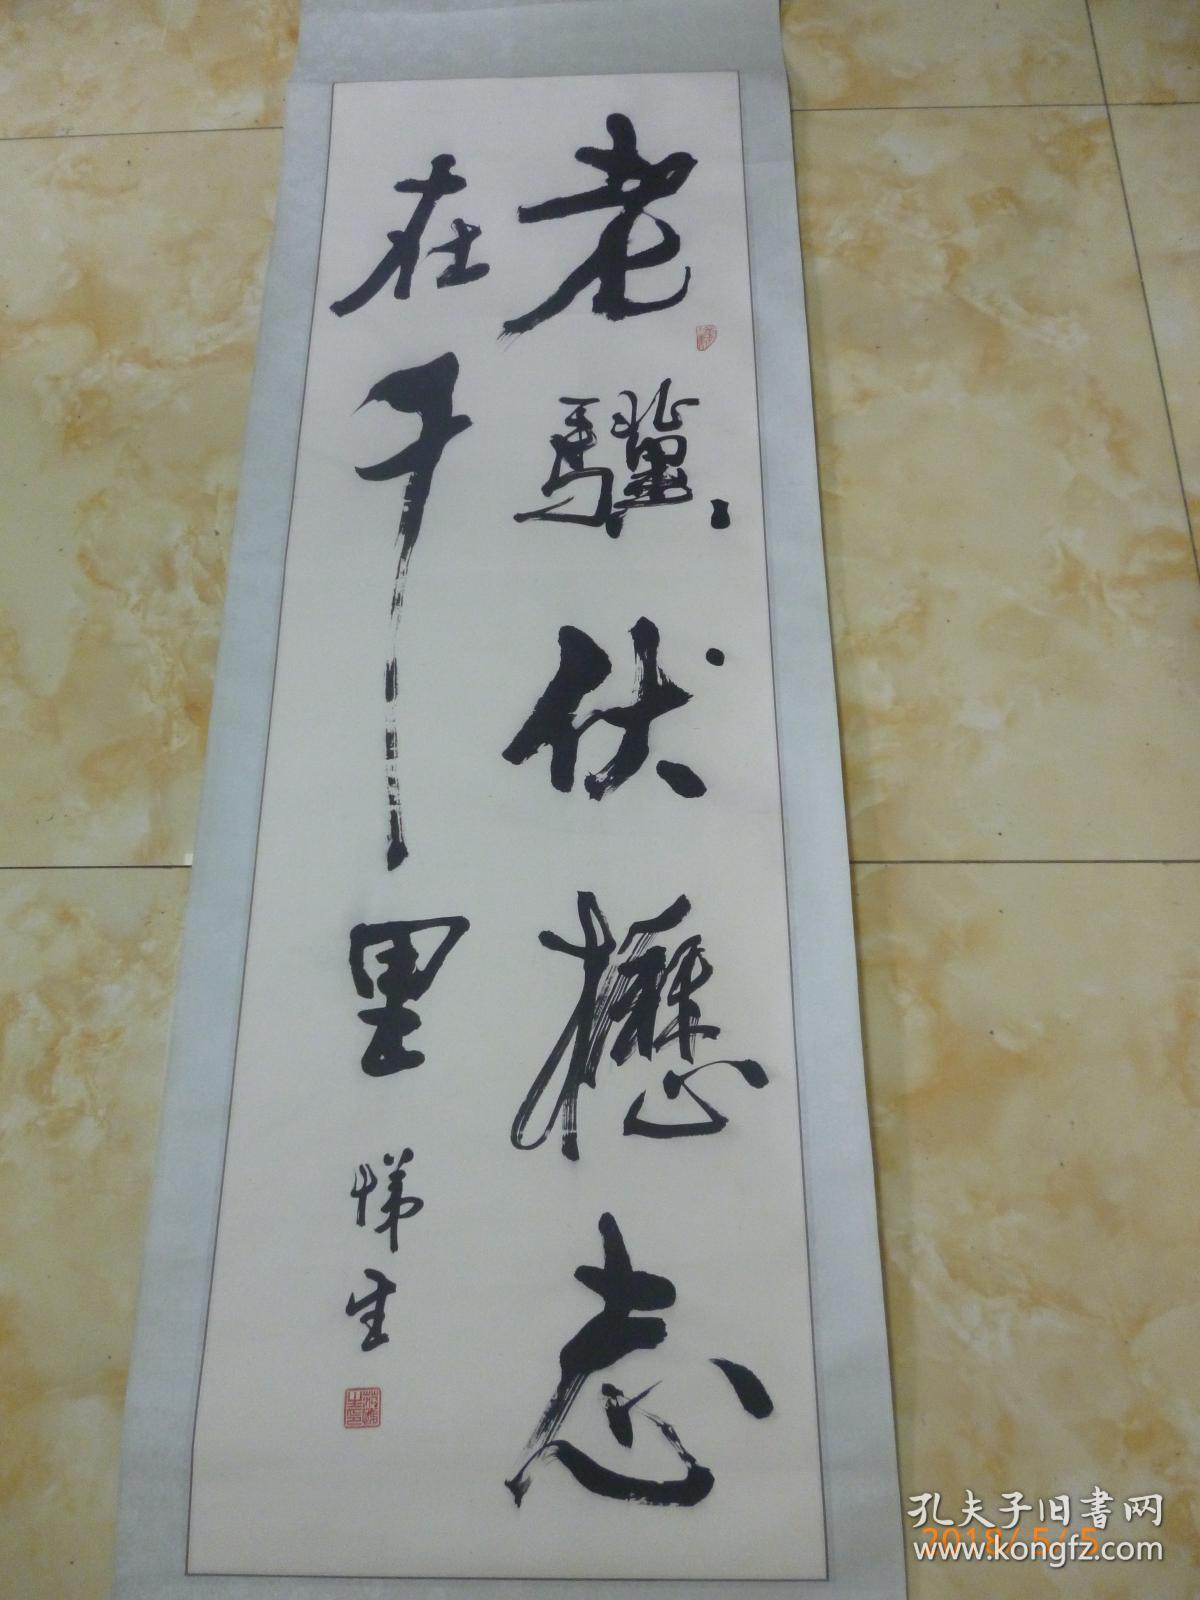 老驥伏櫪志
在千里
悌生
孔夫子旧書网
2018/5/5
www.kongfz.com